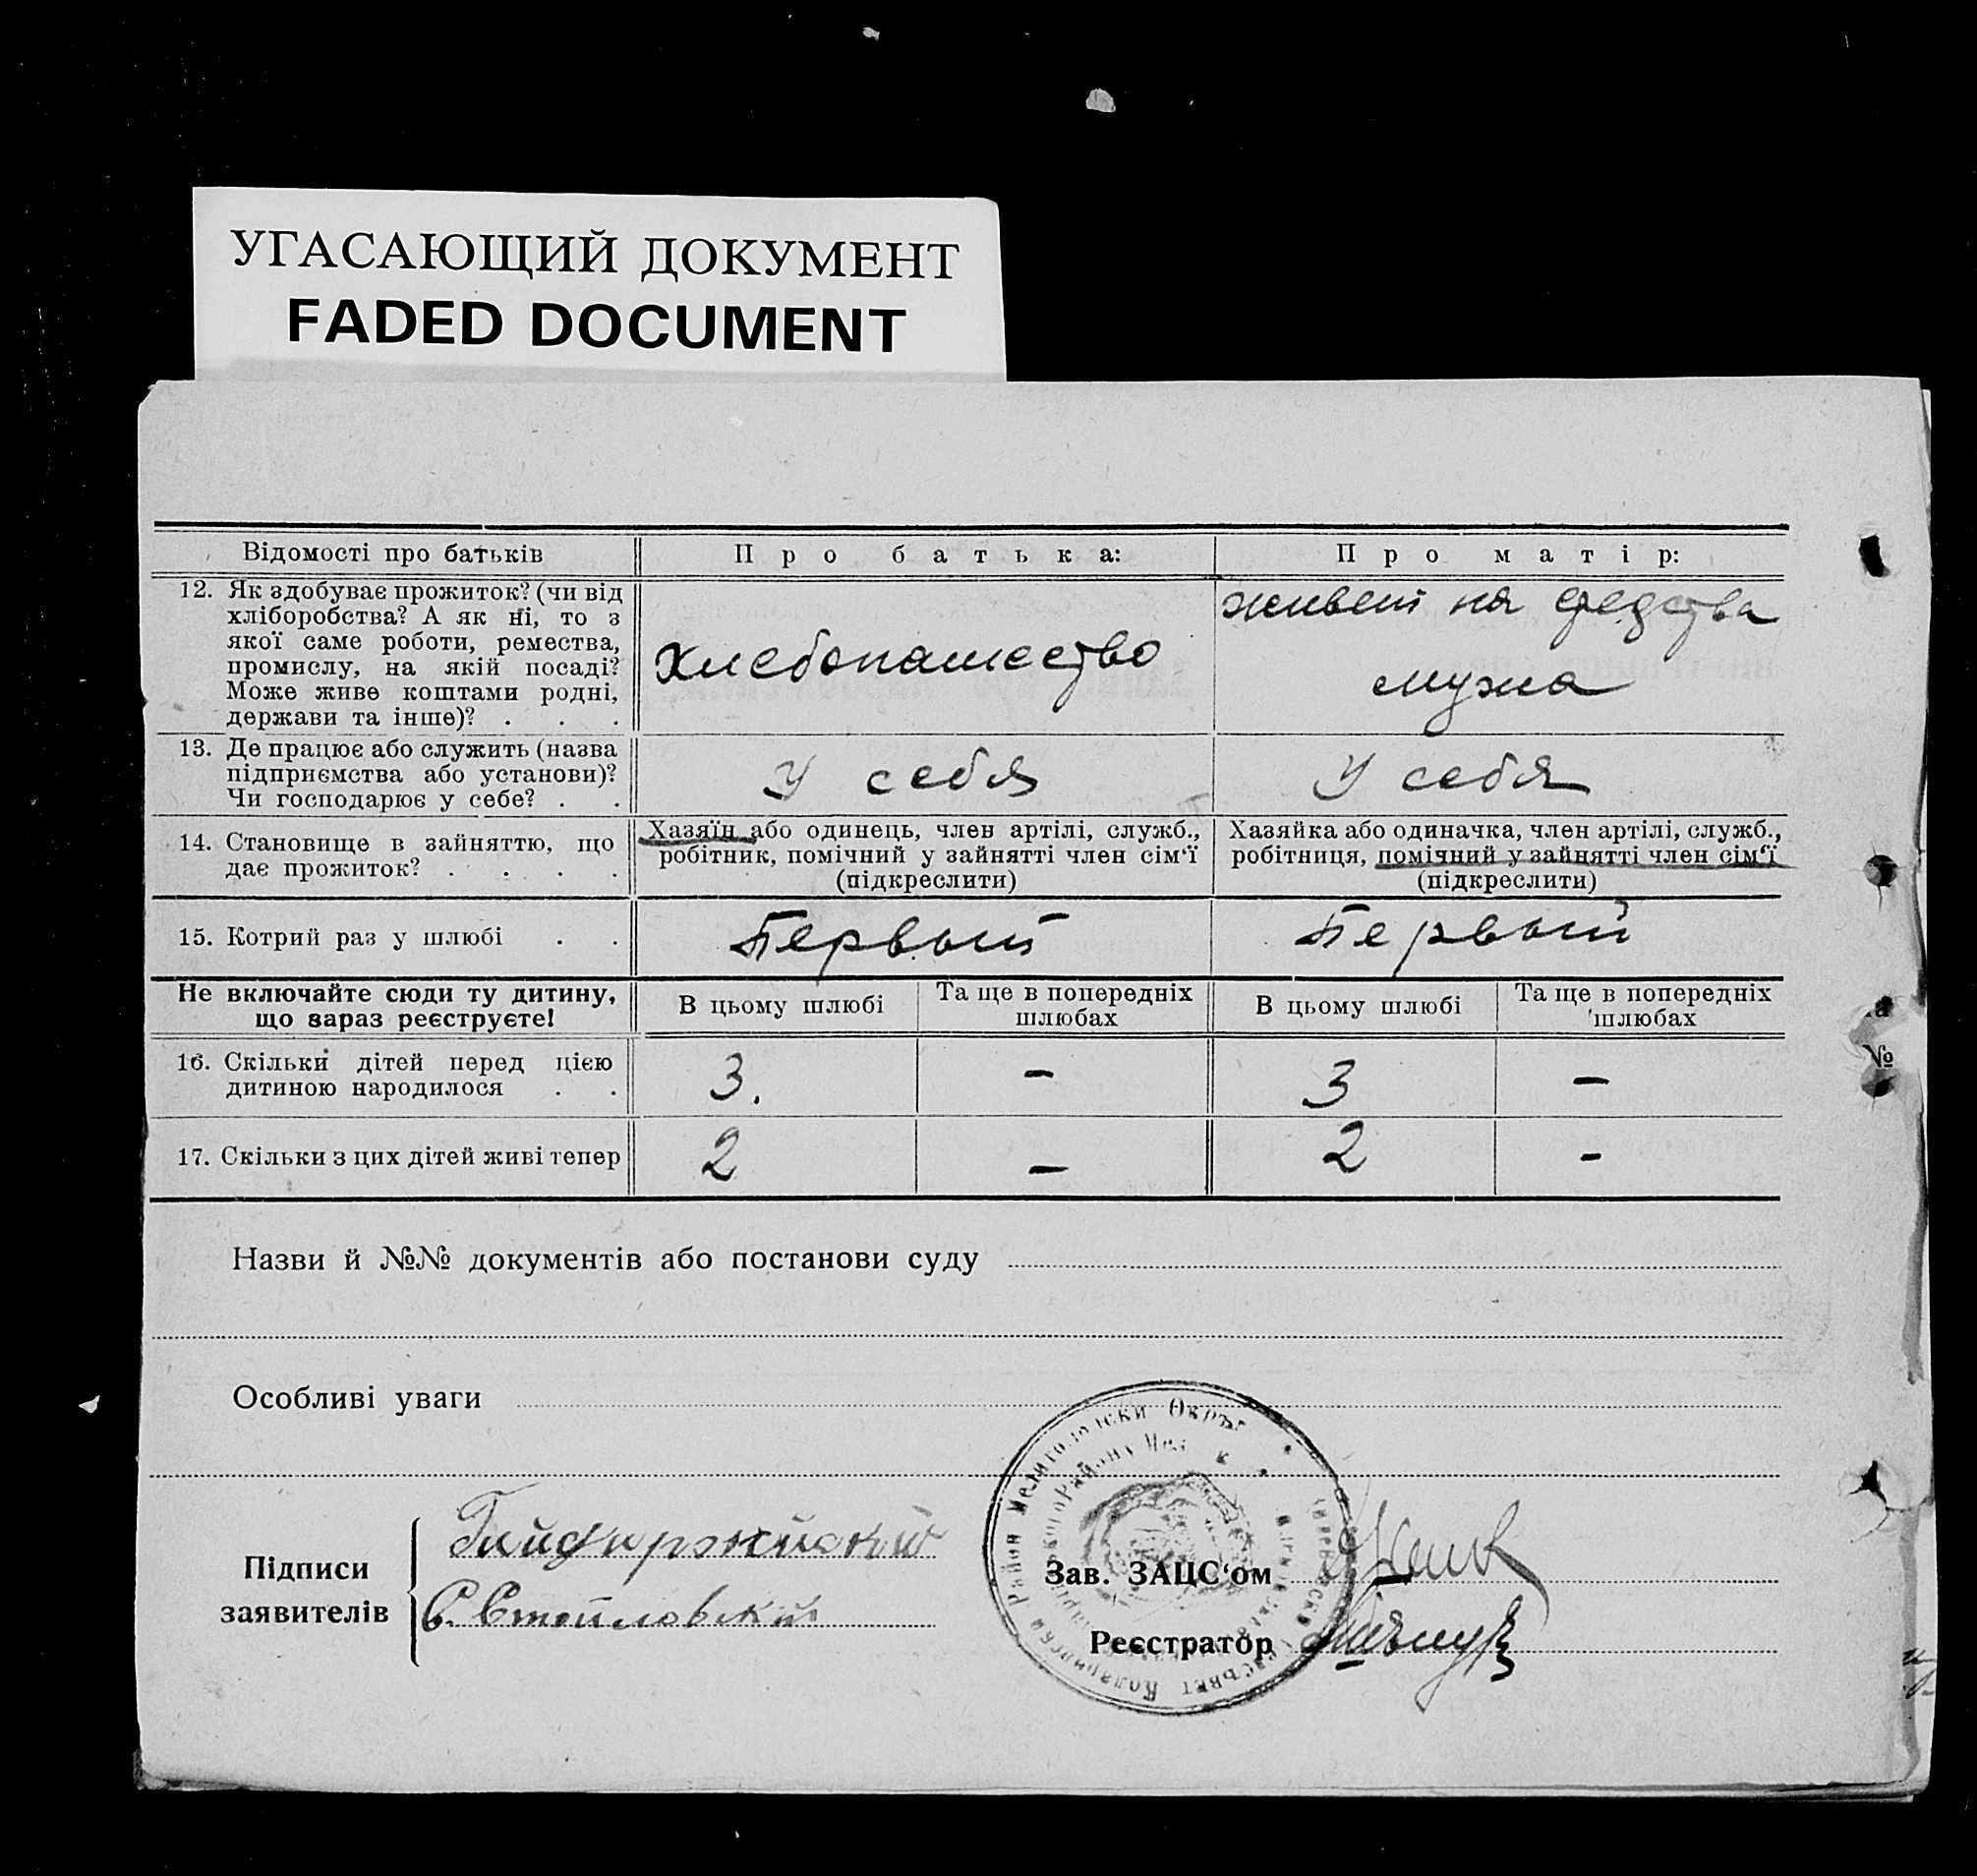 УГАСАЮЩИЙ ДОКУМЕНТ
FADED DOCUMENT
Відомості про батьків
Про батька:
Про матір:
12. Як здобуває прожиток? (чи від
хліборобства? А як ні, то з
якої саме роботи, ремества,
промислу, на якій посаді?
Може живе коштами родні,
держави та інше)? . . .
Хлебопашество
живет на средства
мужа
13. Де працює або служить (назва
підприємства або установи)?
Чи господарює у себе? . .
У себя
У себя
14. Становище в зайняттю, що
дає прожиток? . . . .
Хазяїн або одинець, член артілі, служб.,
робітник, помічний у зайнятті член сім‘ї
(підкреслити)
Хазяйка або одиначка, член артілі, служб.,
робітниця, помічний у зайнятті член сім‘ї
(підкреслити)
15. Котрий раз у шлюбі . .
Первый
Первый
Не включайте сюди ту дитину,
що зараз реєструєте!
В цьому шлюбі
Та ще в попередніх
шлюбах
В цьому шлюбі
Та ще в попередніх
шлюбах
16. Скільки дітей перед цією
дитиною народилося . .
3.
–
3
–
17. Скільки з цих дітей живі тепер
2
–
2
-
№
Назви й №№ документів або постанови суду
Особливі уваги
Підписи
заявителів
Гайдиржийский
С. Стойловский
Зав. ЗАЦС‘ом
Реєстратор